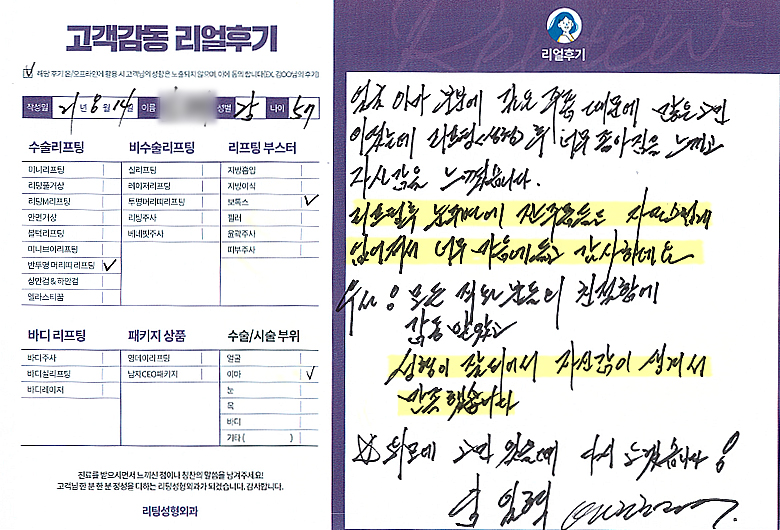 고객감동 리얼후기
해당 후기 온/오프라인에 활용 시 고객님의 성함은 노출되지 않으며, 이에 동의 합니다(EX. 김OO님의 후기)
작성일 21년 8월 14일 이름 성별 남 나이 57
수술리프팅
미니리프팅
리팅풀거상
리팅M리프팅
안면거상
블럭리프팅
미니브이리프팅
반투명 머리띠 리프팅
상안검&하안검
엘라스티꿈
비수술리프팅
실리프팅
레이저리프팅
투명머리띠리프팅
리팅주사
버네빗주사
리프팅 부스터
지방흡입
지방이식
보톡스
필러
윤곽주사
피부주사
바디 리프팅
바디주사
바디실리프팅
바디레이저
패키지 상품
원데이리프팅
남자CEO패키지
수술/시술 부위
얼굴
이마
눈
목
바디
기타 ( )
진료를 받으시면서 느끼신 점이나 칭찬의 말씀을 남겨주세요!
고객님 한 분 한 분 정성을 다하는 리팅성형외과가 되겠습니다. 감사합니다.
리팅성형외과
Review
리얼후기
이마 부분에 깊은 주름 때문에 많은 고민
이었는데 리프팅(성형) 후 너무 좋아짐을 느끼고
자신감을 느꼈습니다.
리프팅후 눈주변에 잔주름들도 자연스럽게
없어져서 너무 마음에들고 감사하네요
모든 직원분들의 친절함에
감동 받았고
성형이 잘되어서 자신감이 생겨서
만족했습니다
외모에 고민 있을때 다시 오겠습니다